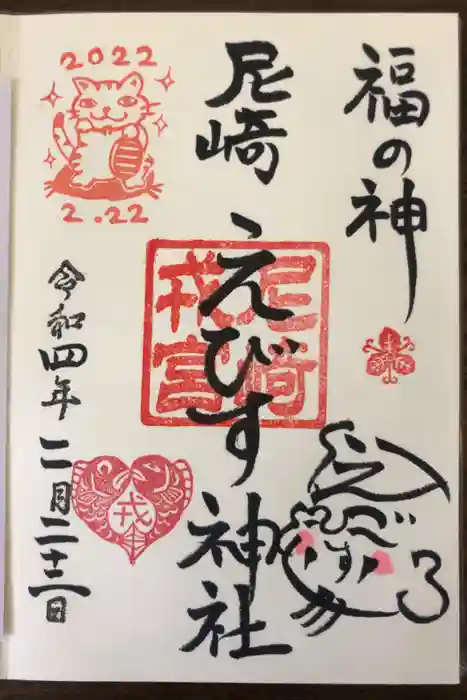 福の神
尼崎えびす神社
尼崎
戎宮
2022
2.22
令和四年二月二十三日
戎